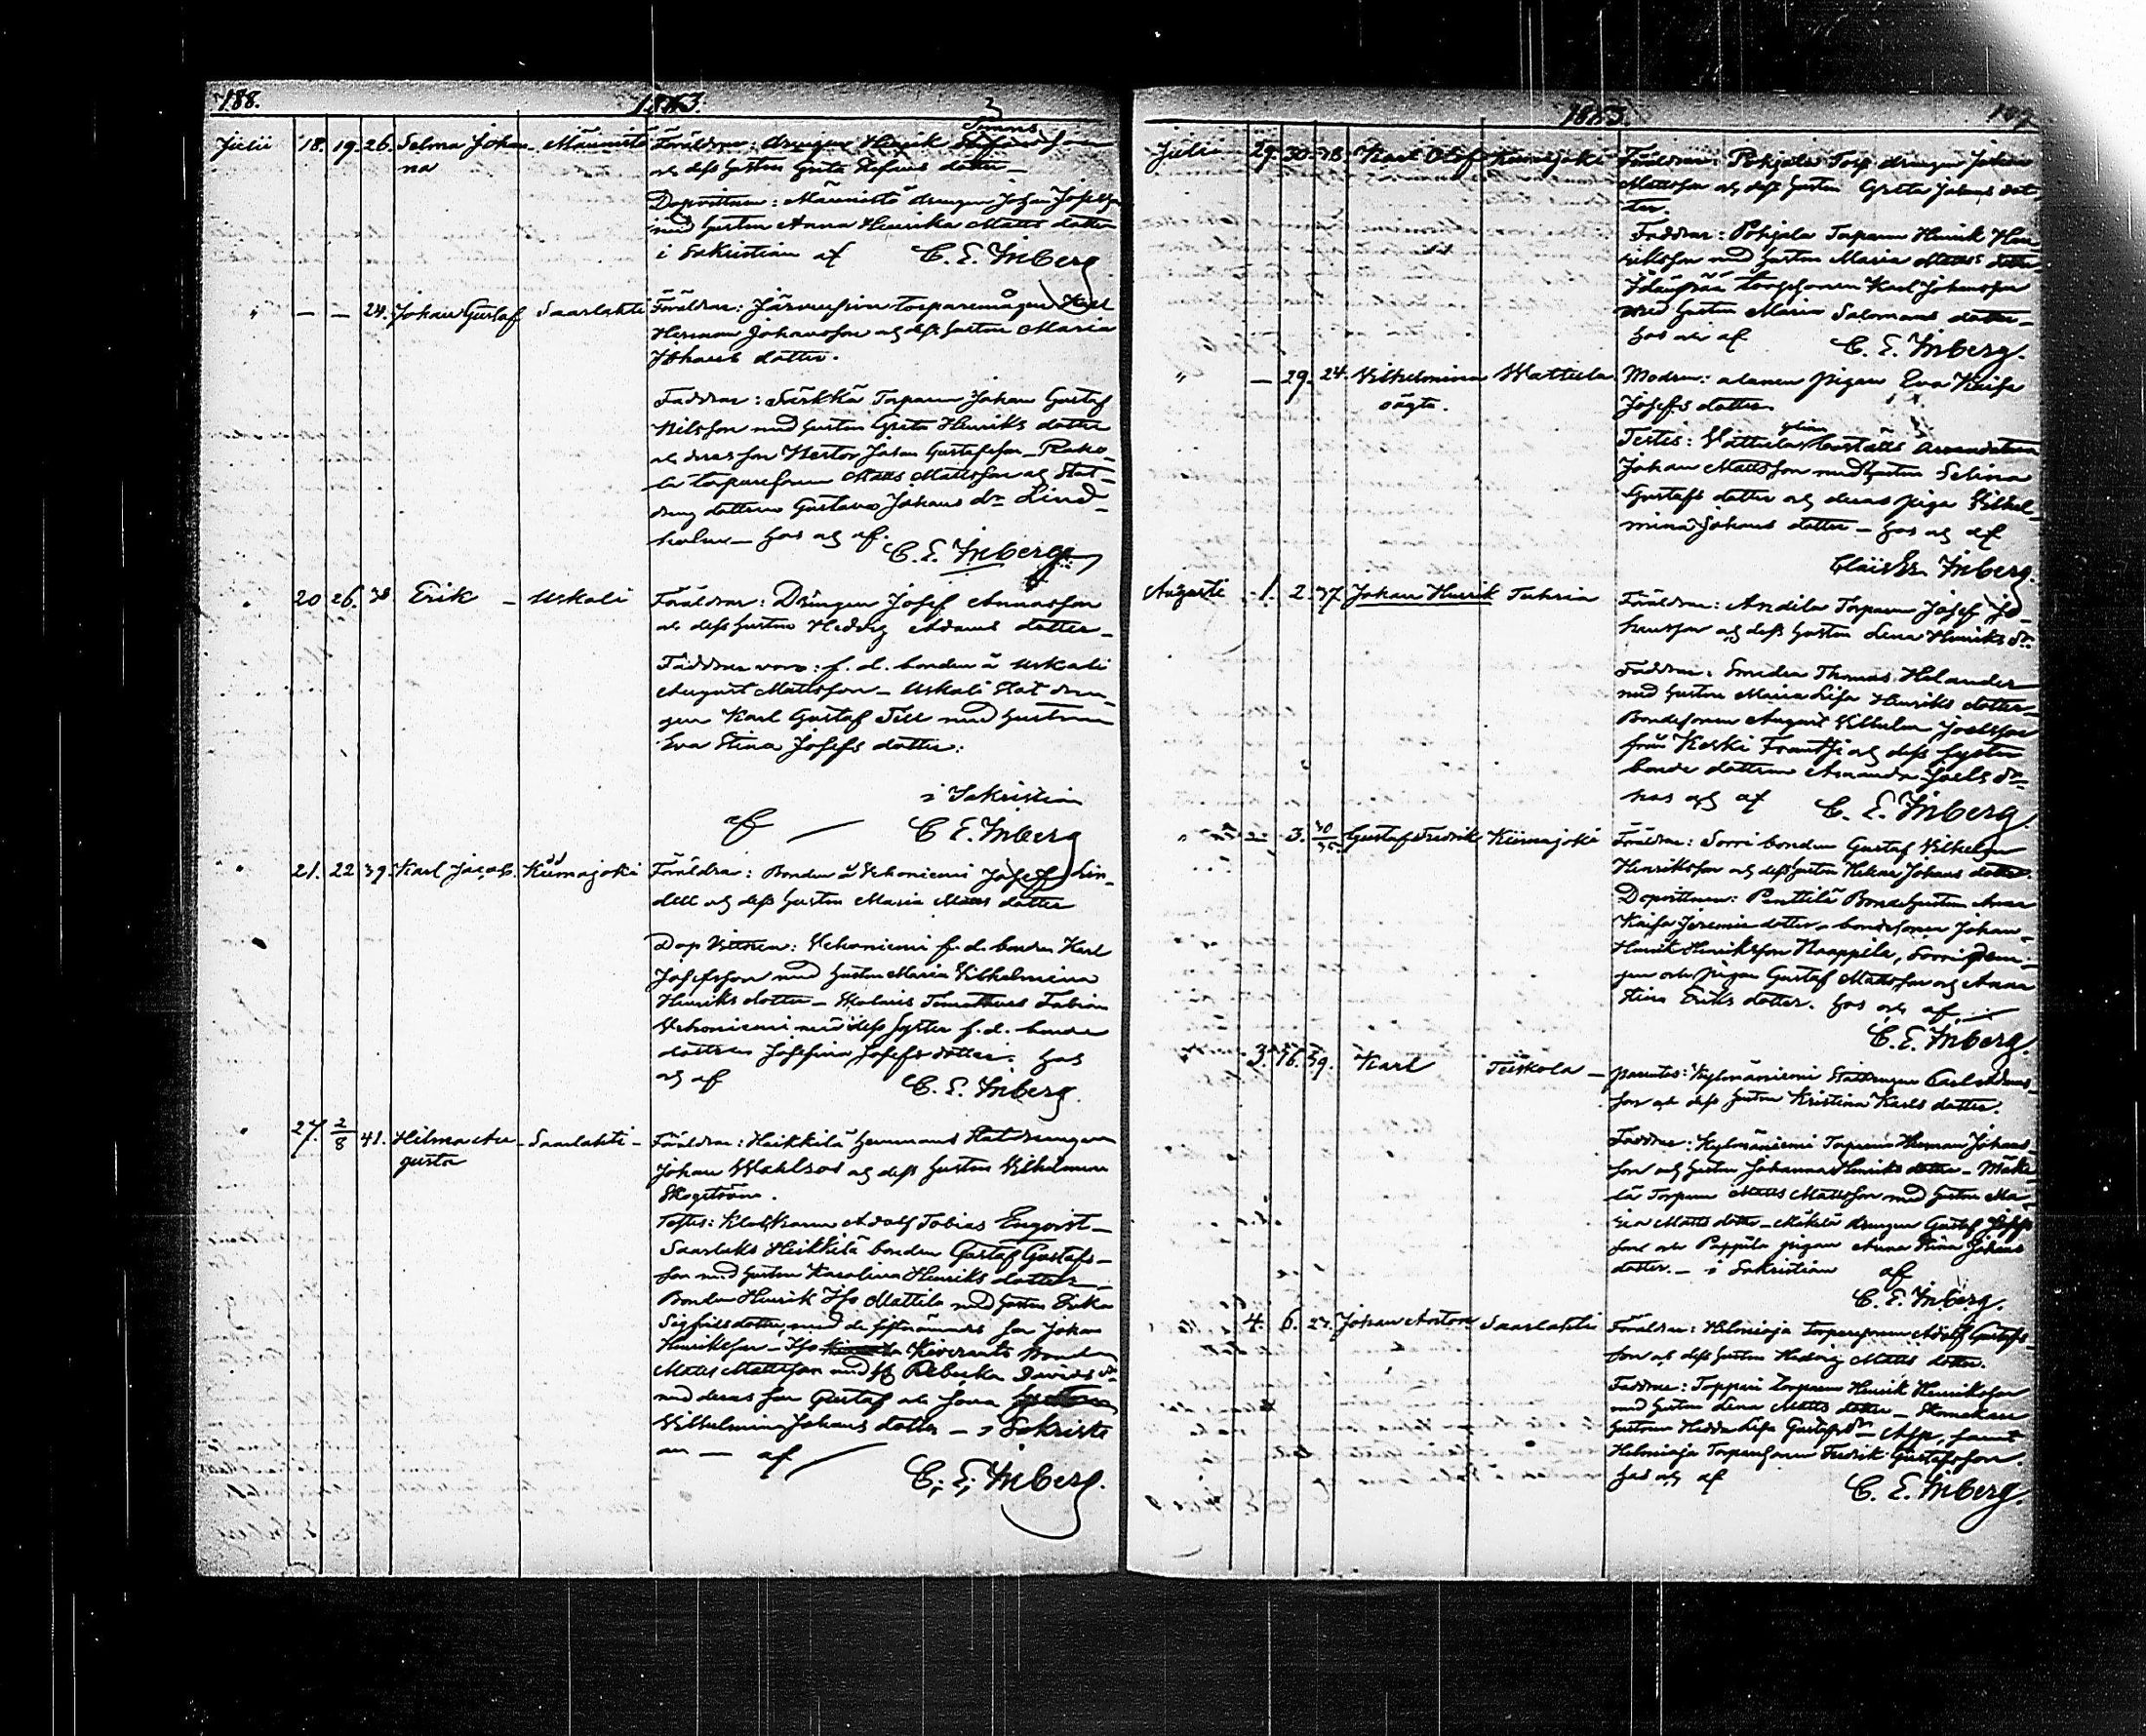 188.
1883.
Julii 18. 19. 26. Selma Johan- Männistö Föräldrar: drängen Henrik son
na och dess hustru Greta Stefans dotter –
Dopvittnen: Männistö drängen Johan Josefsson
med hustru Anna Henrika Matts dotter
i Sakristian af C. E. Inberg
" – – 24. Johan Gustaf Saarlahti Föräldrar: torparemågen Karl
Herman Johansson och dess hustru Maria
Johans dotter.
Faddrar: Särkkä Torparen Johan Gustaf
Nilsson med hustru Greta Henriks dotter
och deras son Nestor Johan Gustafsson –
torparesonen Matts Mattsson och Stat-
dräng dottern Gustava Johans dr Lind-
holm – hos och af. C. E. Inberg
" 20 26. 38 Erik – Uskali Föräldrar: Drängen Josef Annasson
och dess hustru Hedvig Adams dotter –
Faddrar voro: f. d. bonden å Uskali
August Mattsson – Uskali Stat drän-
gen Karl Gustaf Tell med hustrun
Eva Stina Josefs dotter:
i Sakristian
af – C. E. Inberg
" 21. 22 39. Karl Jacob. Kiimajoki Föräldrar: Bonden å Vehoniemi Josef Lin-
dell och dess hustru Maria Matts dotter
Dop Vittnen: Vehoniemi f. d. bonden Karl
Josefsson med hustru Maria Vilhelmina
Henriks dotter – Timotheus Fabian
Vehoniemi med dess syster f. d. bonde
dottren Josefina Josefs dotter. hos
och af C. E. Inberg.
" 27. 2/8 41. Hilma Au- Saarlahti – Föräldrar: Heikkilä hemmans Statdrängen
gusta Johan och dess hustru Vilhelmina
Skogström.
Testes: Klockaren Adolf Tobias Engvist –
Saarlaks Heikkilä bonden Gustaf Gustafs-
son med hustru Karolina Henriks dotter –
Bonden Henrik Iso Mattila med hustru Erika
Sigfridsdotter, med de sistnämndes son Johan
Henriksson – Iso Bonden
Matts Mattsson med Rebecka Davids dr
med deras son Gustaf och hans
Vilhelmina Johans dotter – i Sakristi-
an – af
C. E. Inberg.
1883.
Julii 29. 30. 38. Karl Olof Kiimajoki Föräldrar: Pohjala Torp drängen Johan
Mattsson och dess hustru Greta Johans dot-
ter.
Faddrar: Pohjala Torparen Henrik Hen-
riksson med hustru Maria Matts dotter
torpsonen Karl Johansson
med hustru Maria Salomons dotter –
hos och af C. E. Inberg.
" – 29. 24. Vilhelmina Wattula Modren: pigan Eva Kaisa
oägta. Josefs dotter
Testes: Vattula Bostälts Arrendatorn
Johan Mattsson med hustru Selina
Gustafs dotter och deras piga Vilhel-
mina Johans dotter – hos och af
Inberg.
Augusti 1. 2. 37. Johan Henrik Tuhria Föräldrar: Andila Torparen Josef Jo-
hansson och dess hustru Lena Henriks dr
Faddrar: Smeden Thomas Helander
med hustru Maria Lisa Henriks dotter –
Bondesonen August Vilhelm Joelsson
från Keski Frantsi och dess syster
bonde dottern Amanda Joels dr
hos och af C. E. Inberg.
" 2 3. Gustaf Fredrik Kiimajoki Föräldrar: Sorri bonden Gustaf Vilhelm
Henriksson och dess hustru Helena Johans dotter.
Dopvittnen: Penttilä Bondehustrun Anna
Kaisa Jeremie dotter, bondesonen Johan
Henrik Henriksson Kaappila, Sorri drän-
gen och pigan Gustaf Mattsson och Anna
Stina Eriks dotter. hos och af –
C. E. Inberg.
3. 16. 39. Karl Teiskola – parentes: Kylmäniemi Statdrängen Carl Adams-
son och dess hustru Kristina Karls dotter.
Faddrar: Kylmäniemi Torparen Herman Johans-
son och hustru Johanna Henriks dotter – Mäke-
lä Torparen Matts Mattsson med hustru Ma-
ria Matts dotter – Mäkelä drängen Gustaf Josefs-
son och Pappila pigan Anna Stina Johans
dotter. – i Sakristian af
C. E. Inberg.
4. 6. 27. Johan Anton Saarlahti Föräldrar: Torparesonen Adolf Gustafs-
son och dess hustru Hedvig Matts dotter.
Faddrar: Toppari Torparen Henrik Henriksson
med hustru Lena Matts dotter – Skomakare
hustrun Hedda Lisa Gustafs dr Asp, samt
Torparesonen Fredrik Gustafsson.
hos och af C. E. Inberg.